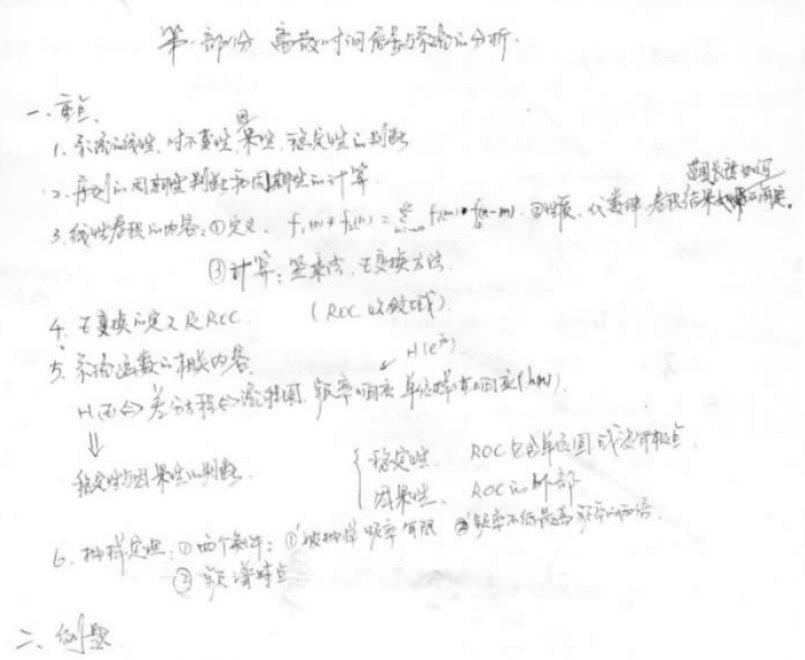 第一部份 离散时间信号与系统的分析.
一、重点.
1. 系统的线性, 时不变性, 因果性, 稳定性的判断
2. 序列的周期性判断和周期性的计算.
范围长度如何
3. 线性卷积的内容: ① 定义. f₁(n)*f₂(n) = Σ f₁(m)·f₂(n-m). ②性质、代数律 卷积结果 的确定。
③ 计算: 竖乘法, Z变换方法.
4. Z变换的定义及ROC. (ROC 收敛域)
5. 系统函数的相关内容. ↙ H(e^{jω})
H(z) ⇔ 差分方程 ⇔ 流程图, 频率响应 单位脉冲响应(h(n)).
⇓
稳定性与因果性的判断. { 稳定性. ROC包含单位圆
因果性. ROC的外部
6. 抽样定理: ① 两个条件: ① 被抽样频率有限 ② 频率不低最高频率的两倍.
② 频谱特点
二、例题